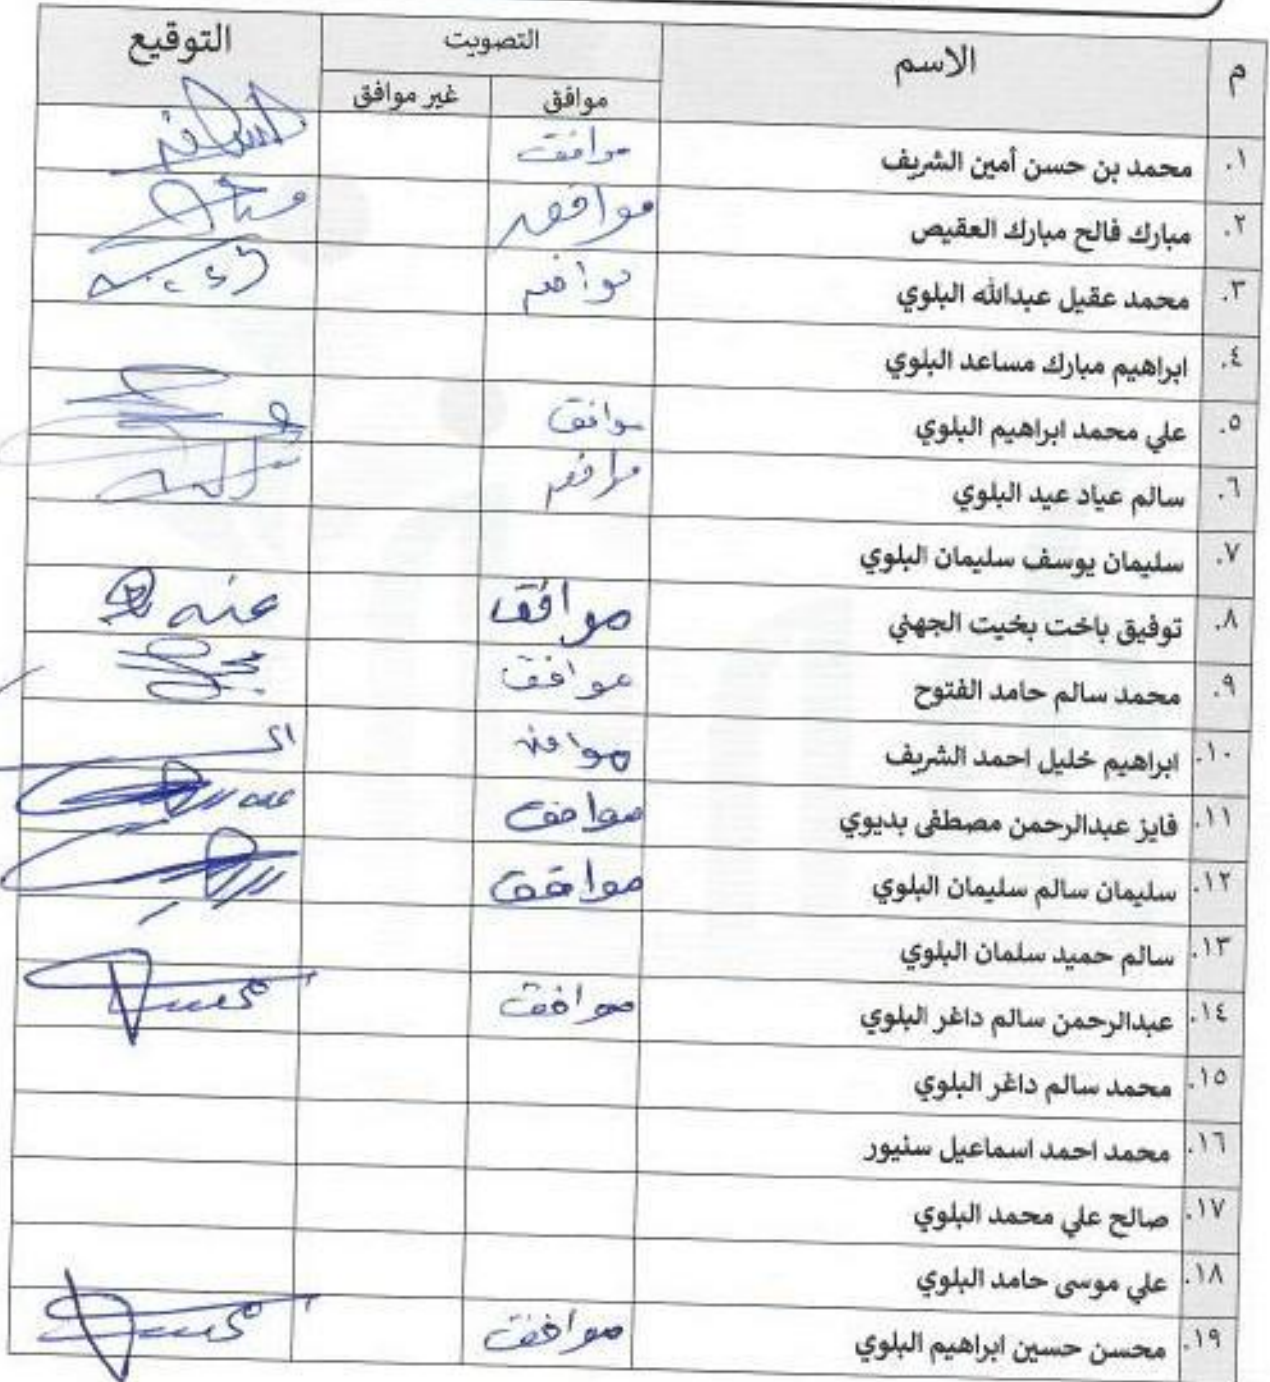 م الاسم التصويت التوقيع
موافق غير موافق
١. محمد بن حسن أمين الشريف موافق
٢. مبارك فالح مبارك العقيص موافق
٣. محمد عقيل عبدالله البلوي موافق
٤. ابراهيم مبارك مساعد البلوي
٥. علي محمد ابراهيم البلوي موافق
٦. سالم عياد عيد البلوي موافق
٧. سليمان يوسف سليمان البلوي
٨. توفيق باخت بخيت الجهني موافق عنه
٩. محمد سالم حامد الفتوح موافق
١٠. ابراهيم خليل احمد الشريف موافق
١١. فايز عبدالرحمن مصطفى بديوي موافق عنه
١٢. سليمان سالم سليمان البلوي موافق
١٣. سالم حميد سلمان البلوي
١٤. عبدالرحمن سالم داغر البلوي موافق
١٥. محمد سالم داغر البلوي
١٦. محمد احمد اسماعيل سنيور
١٧. صالح علي محمد البلوي
١٨. علي موسى حامد البلوي
١٩. محسن حسين ابراهيم البلوي موافق